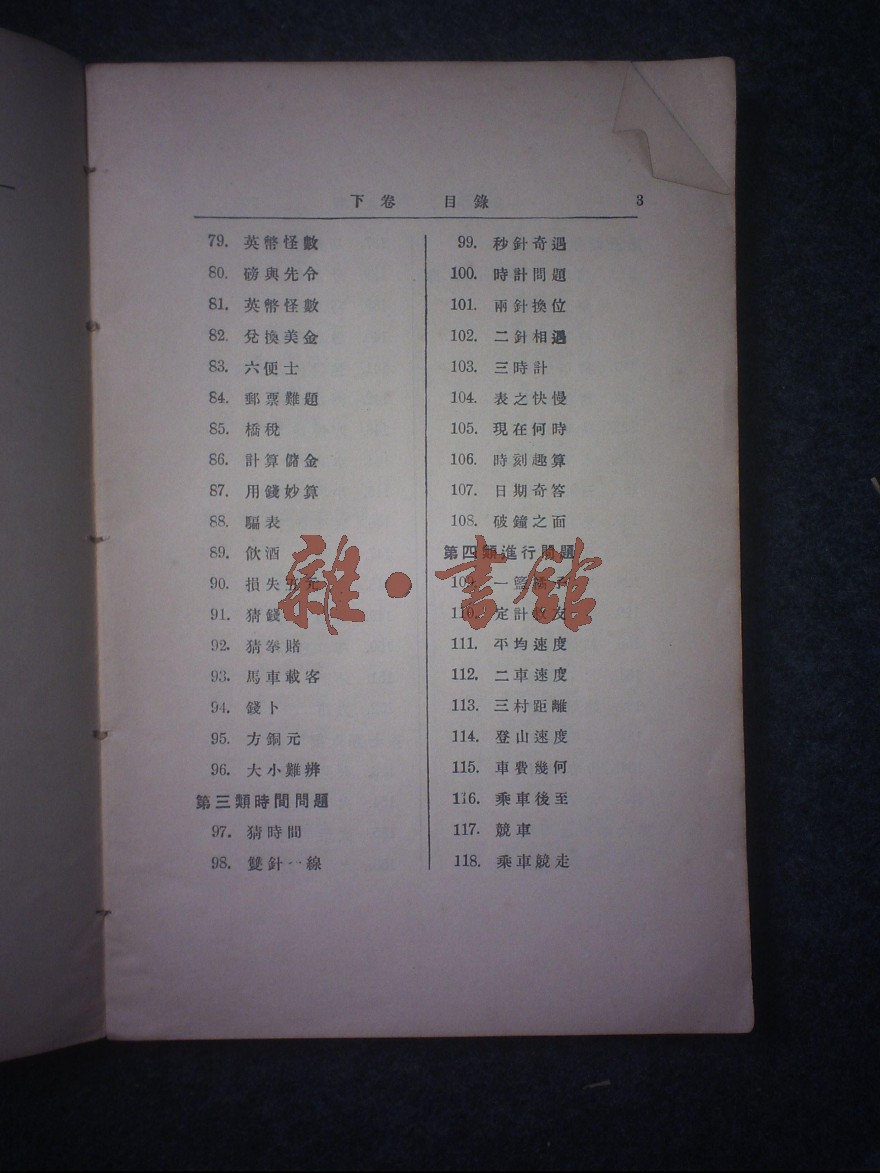 下卷 目錄 3
79. 英幣怪數
80. 磅與先令
81. 英幣怪數
82. 兌換美金
83. 六便士
84. 郵票難題
85. 橋稅
86. 計算儲金
87. 用錢妙算
88. 騙表
89. 飲酒
90. 損失五元
91. 猜錢
92. 猜拳賭
93. 馬車載客
94. 錢卜
95. 方銅元
96. 大小難辨
第三類時間問題
97. 猜時間
98. 雙針一線
99. 秒針奇遇
100. 時計問題
101. 兩針換位
102. 二針相遇
103. 三時計
104. 表之快慢
105. 現在何時
106. 時刻趣算
107. 日期奇答
108. 破鐘之面
第四類進行問題
109. 一籃橘子
110. 定計收友
111. 平均速度
112. 二車速度
113. 三村距離
114. 登山速度
115. 車費幾何
116. 乘車後至
117. 競車
118. 乘車競走
雜·書館